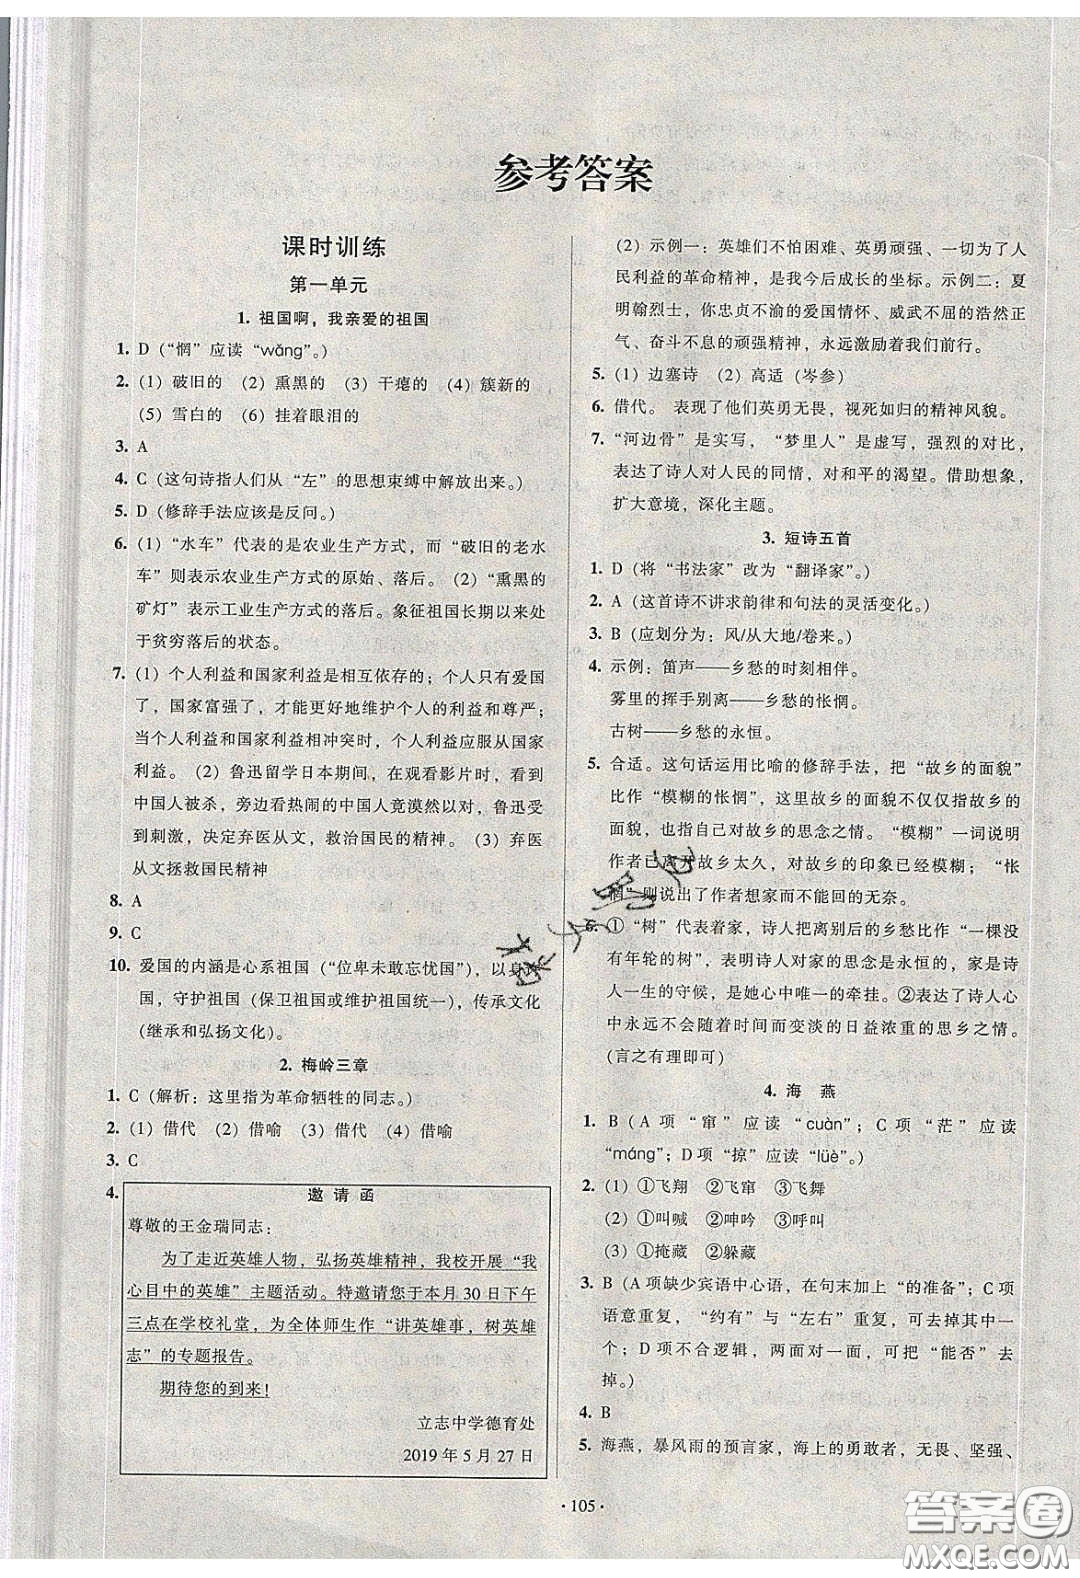 参考答案
课时训练
第一单元
1. 祖国啊，我亲爱的祖国
1. D（“惘”应读“wǎng”。）
2. (1) 破旧的 (2) 熏黑的 (3) 干瘪的 (4) 簇新的
(5) 雪白的 (6) 挂着眼泪的
3. A
4. C（这句诗指人们从“左”的思想束缚中解放出来。）
5. D（修辞手法应该是反问。）
6. (1)“水车”代表的是农业生产方式，而“破旧的老水
车”则表示农业生产方式的原始、落后。(2)“熏黑的
矿灯”表示工业生产方式的落后。象征祖国长期以来处
于贫穷落后的状态。
7. (1) 个人利益和国家利益是相互依存的；个人只有爱国
了，国家富强了，才能更好地维护个人的利益和尊严；
当个人利益和国家利益相冲突时，个人利益应服从国家
利益。(2) 鲁迅留学日本期间，在观看影片时，看到
中国人被杀，旁边看热闹的中国人竟漠然以对，鲁迅受
到刺激，决定弃医从文，救治国民的精神。(3) 弃医
从文拯救国民精神
8. A
9. C
10. 爱国的内涵是心系祖国（“位卑未敢忘忧国”），以身
国，守护祖国（保卫祖国或维护祖国统一），传承文化
（继承和弘扬文化）。
2. 梅岭三章
1. C（解析：这里指为革命牺牲的同志。）
2. (1) 借代 (2) 借喻 (3) 借代 (4) 借喻
3. C
4.
邀 请 函
尊敬的王金瑞同志：
为了走近英雄人物，弘扬英雄精神，我校开展“我
心目中的英雄”主题活动。特邀请您于本月30日下午
三点在学校礼堂，为全体师生作“讲英雄事，树英雄
志”的专题报告。
期待您的到来！
立志中学德育处
2019 年 5 月 27 日
(2) 示例一：英雄们不怕困难、英勇顽强、一切为了人
民利益的革命精神，是我今后成长的坐标。示例二：夏
明翰烈士，你忠贞不渝的爱国情怀、威武不屈的浩然正
气、奋斗不息的顽强精神，永远激励着我们前行。
5. (1) 边塞诗 (2) 高适（岑参）
6. 借代。表现了他们英勇无畏，视死如归的精神风貌。
7. “河边骨”是实写，“梦里人”是虚写，强烈的对比，
表达了诗人对人民的同情，对和平的渴望。借助想象，
扩大意境，深化主题。
3. 短诗五首
1. D（将“书法家”改为“翻译家”。）
2. A（这首诗不讲求韵律和句法的灵活变化。）
3. B（应划分为：风/从大地/卷来。）
4. 示例：笛声——乡愁的时刻相伴。
雾里的挥手别离——乡愁的怅惘。
古树——乡愁的永恒。
5. 合适。这句话运用比喻的修辞手法，把“故乡的面貌”
比作“模糊的怅惘”，这里故乡的面貌就是故乡的
面貌，也指自己对故乡的思念之情。“模糊”一词说明
作者已离开故乡太久，对故乡的印象已经模糊；“怅
惘”则说出了作者想家而不能回的无奈。
6. ①“树”代表着家，诗人把离别后的乡愁比作“一棵没
有年轮的树”，表明诗人对家的思念是永恒的，家是诗
人一生的守候，是她心中唯一的牵挂。②表达了诗人心
中永远不会随着时间而变淡的日益浓重的思乡之情。
（言之有理即可）
4. 海 燕
1. B（A 项“窜”应读“cuàn”；C 项“茫”应读
“máng”；D 项“掠”应读“lüè”。）
2. (1) ①飞翔 ②飞窜 ③飞舞
(2) ①叫喊 ②呻吟 ③呼叫
(3) ①掩藏 ②躲藏
3. B（A 项缺少宾语中心语，在句末加上“的准备”；C 项
语意重复，“约有”与“左右”重复，可去掉其中一
个；D 项不合逻辑，两面对一面，可把“能否”去
掉。）
4. B
5. 海燕，暴风雨的预言家，海上的勇敢者，无畏、坚强、
· 105 ·
答案圈
MXQE.COM